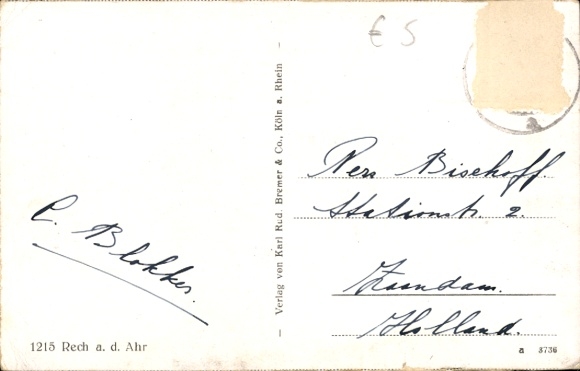 € 5
C. Blokker.
1215 Rech a. d. Ahr
– Verlag von Karl Rud. Bremer & Co., Köln a. Rhein –
Pers Bischoff.
Stationstr. 2.
Zaandam.
Holland.
a 3736